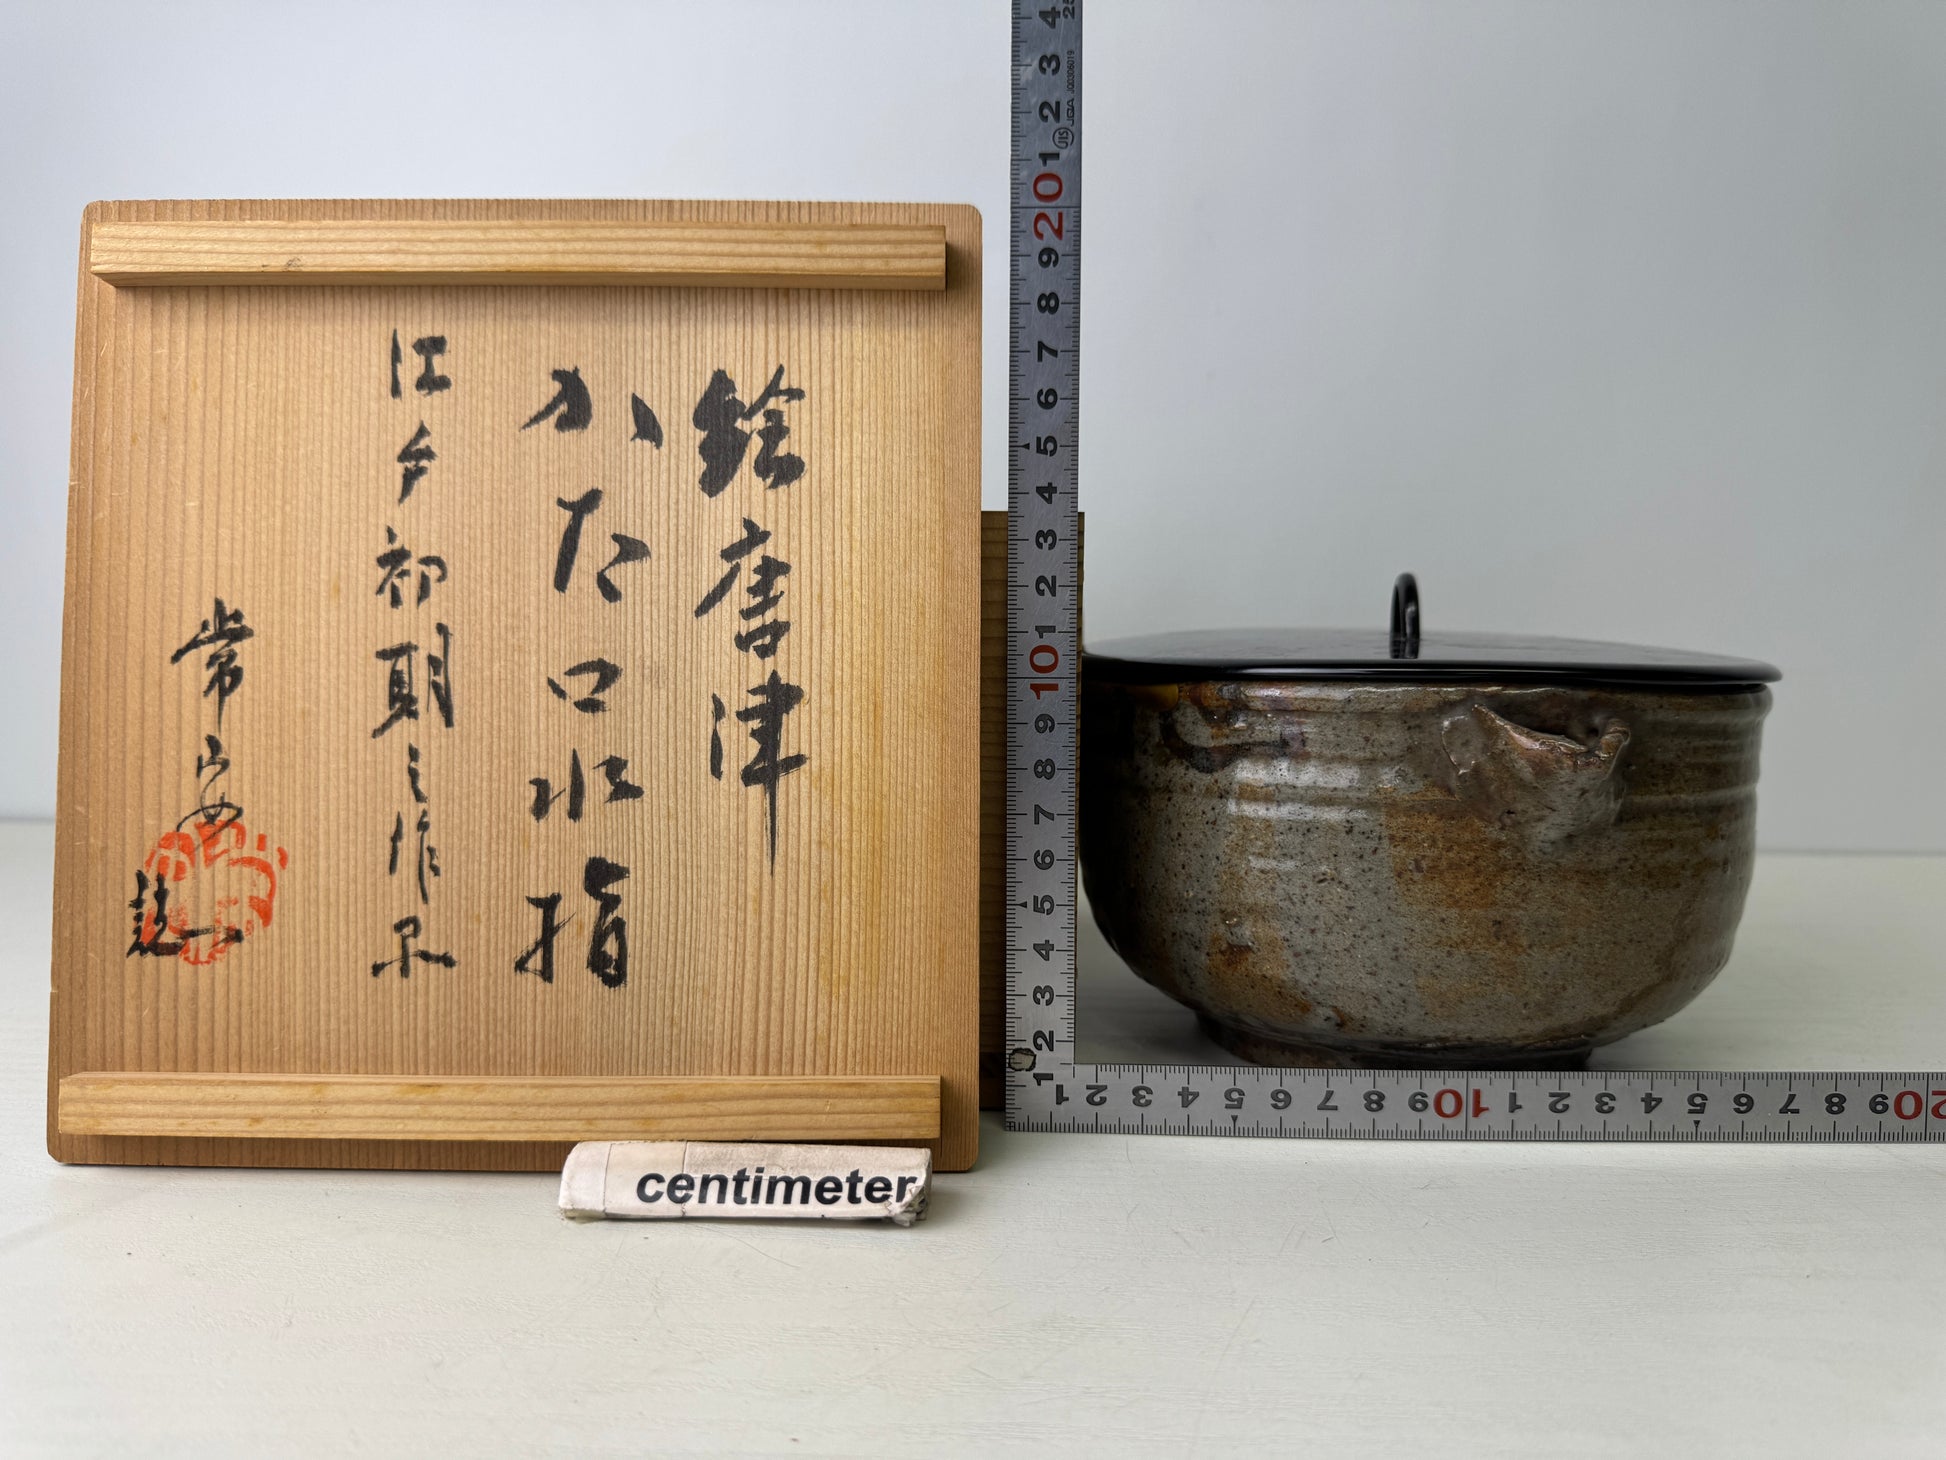 絵唐津
かた口水指
江戸初期之作品
常
centimeter
1 2 3 4 5 6 7 8 9 10 1 2 3 4 5 6 7 8 9 20 1 2 3 4
JIS JQA JQ0306019
25
1 2 3 4 5 6 7 8 9 10 1 2 3 4 5 6 7 8 9 20